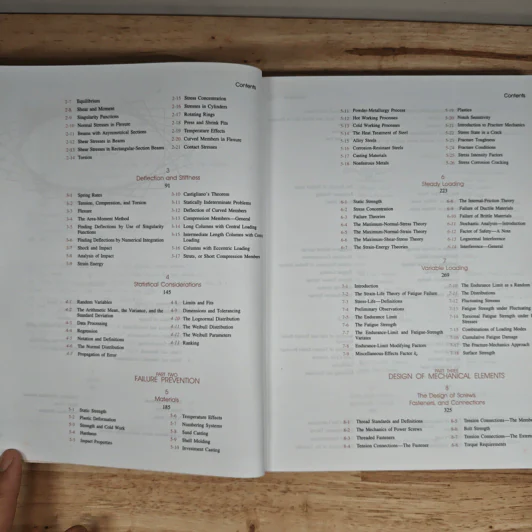 Contents
2-7 Equilibrium
2-8 Shear and Moment
2-9 Singularity Functions
2-10 Normal Stresses in Flexure
2-11 Beams with Asymmetrical Sections
2-12 Shear Stresses in Beams
2-13 Shear Stresses in Rectangular-Section Beams
2-14 Torsion
2-15 Stress Concentration
2-16 Stresses in Cylinders
2-17 Rotating Rings
2-18 Press and Shrink Fits
2-19 Temperature Effects
2-20 Curved Members in Flexure
2-21 Contact Stresses
3
Deflection and Stiffness
3-1 Spring Rates
3-2 Tension, Compression, and Torsion
3-3
3-4 The Area-Moment Method
3-5 Finding Deflections by Use of Singularity
Functions
3-6 Finding Deflections by Numerical Integration
3-7 Shock and Impact
3-8 Analysis of Impact
3-9 Strain Energy
3-10 Castigliano's Theorem
3-11 Statically Indeterminate Problems
3-12 Deflection of Curved Members
3-13 Compression Members—General
3-14 Long Columns with Central Loading
3-15 Intermediate Length Columns with Cent
Loading
3-16 Columns with Eccentric Loading
3-17 Struts, or Short Compression Members
4
Statistical Considerations
145
4-1 Random Variables
4-2 The Arithmetic Mean, the Variance, and the
Standard Deviation
4-3 Data Processing
4-4 Regression
4-5 Notation and Definitions
4-6 The Normal Distribution
4-7 Propagation of Error
4-8 Limits and Fits
4-9 Dimensions and Tolerancing
4-10 The Lognormal Distribution
4-11 The Weibull Distribution
4-12 The Weibull Parameters
4-13 Ranking
PART TWO
FAILURE PREVENTION
5
Materials
185
5-1 Static Strength
5-2 Plastic Deformation
5-3 Strength and Cold Work
5-4 Hardness
5-5 Impact Properties
5-6 Temperature Effects
5-7 Numbering Systems
5-8 Sand Casting
5-9 Shell Molding
5-10 Investment Casting
Contents
5-11 Powder-Metallurgy Process
5-12 Hot Working Processes
5-13 Cold Working Processes
5-14 The Heat Treatment of Steel
5-15 Alloy Steels
5-16 Corrosion-Resistant Steels
5-17 Casting Materials
5-18 Nonferrous Metals
5-19 Plastics
5-20 Notch Sensitivity
5-21 Introduction to Fracture Mechanics
5-22 Stress State in a Crack
5-23 Fracture Toughness
5-24 Fracture Conditions
5-25 Stress Intensity Factors
5-26 Stress Corrosion Cracking
6
Steady Loading
6-1 Static Strength
6-2 Stress Concentration
6-3 Failure Theories
6-4 The Maximum-Normal-Stress Theory
6-5 The Maximum-Normal-Strain Theory
6-6 The Maximum-Shear-Stress Theory
6-7 The Strain-Energy Theories
6-8 The Internal-Friction Theory
6-9 Failure of Ductile Materials
6-10 Failure of Brittle Materials
6-11 Stochastic Analysis—Introduction
6-12 Factor of Safety—A Note
6-13 Lognormal Interference
6-14 Interference—General
7
Variable Loading
269
7-1 Introduction
7-2 The Strain-Life Theory of Fatigue Failure
7-3 Stress-Life—Definitions
7-4 Preliminary Observations
7-5 The Endurance Limit
7-6 The Fatigue Strength
7-7 The Endurance-Limit and Fatigue-Strength
Variates
7-8 Endurance-Limit Modifying Factors
7-9 Miscellaneous-Effects Factor
The Endurance Limit as a Random
The Distributions
Fluctuating Stresses
Fatigue Strength under Fluctuating
Torsional Fatigue Strength under
Stresses
Combinations of Loading Modes
Cumulative Fatigue Damage
The Fracture-Mechanics Approach
Surface Strength
PART THREE
DESIGN OF MECHANICAL ELEMENTS
8
The Design of Screws
Fasteners, and Connections
325
8-1 Thread Standards and Definitions
8-2 The Mechanics of Power Screws
8-3 Threaded Fasteners
8-4 Tension Connections—The Fasteners
8-5 Tension Connections—The Member
8-6 Bolt Strength
8-7 Tension Connections—The Extern
8-8 Torque Requirements